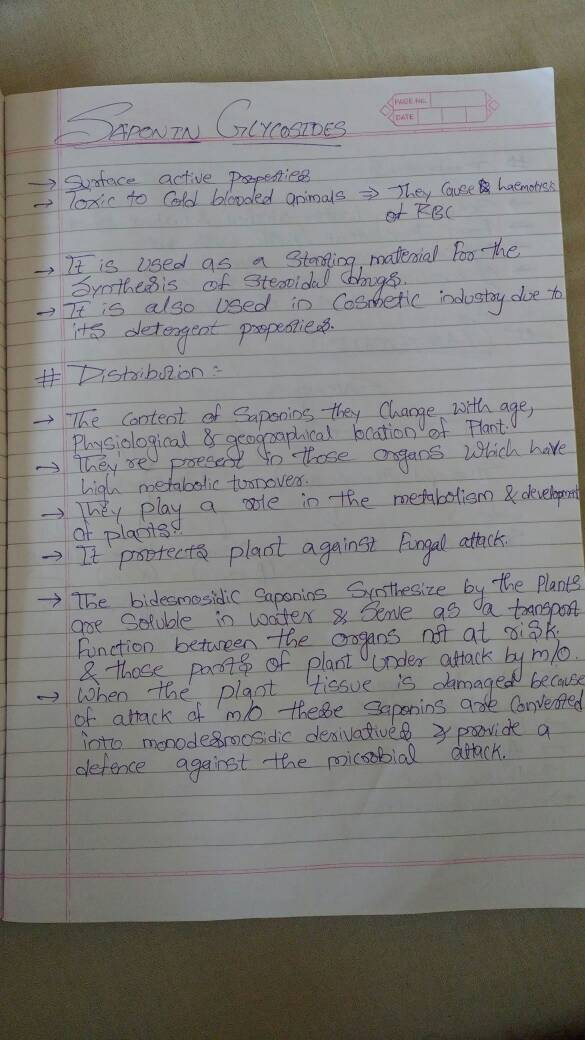 PAGE NO.
DATE
SAPONIN GLYCOSIDES
→ Surface active Properties
→ Toxic to Cold blooded animals ⇒ They Cause haemolysis
of RBC
→ It is used as a Starting material For the
Synthesis of Steroidal drugs.
→ It is also used in Cosmetic industry due to
its detergent properties.
# Distribution :-
→ The Content of Saponins they Change with age,
Physiological & geographical location of Plant.
→ They're present in those organs Which have
high metabolic turnover.
→ They play a role in the metabolism & development
of plants.
→ It protects plant against Fungal attack.
→ The bidesmosidic Saponins Synthesize by the Plants
are Soluble in water & Serve as a transport
Function between the organs not at risk.
& those parts of plant under attack by m/o.
→ When the plant tissue is damaged because
of attack of m/o these Saponins are Converted
into monodesmosidic derivatives & provide a
defence against the microbial attack.